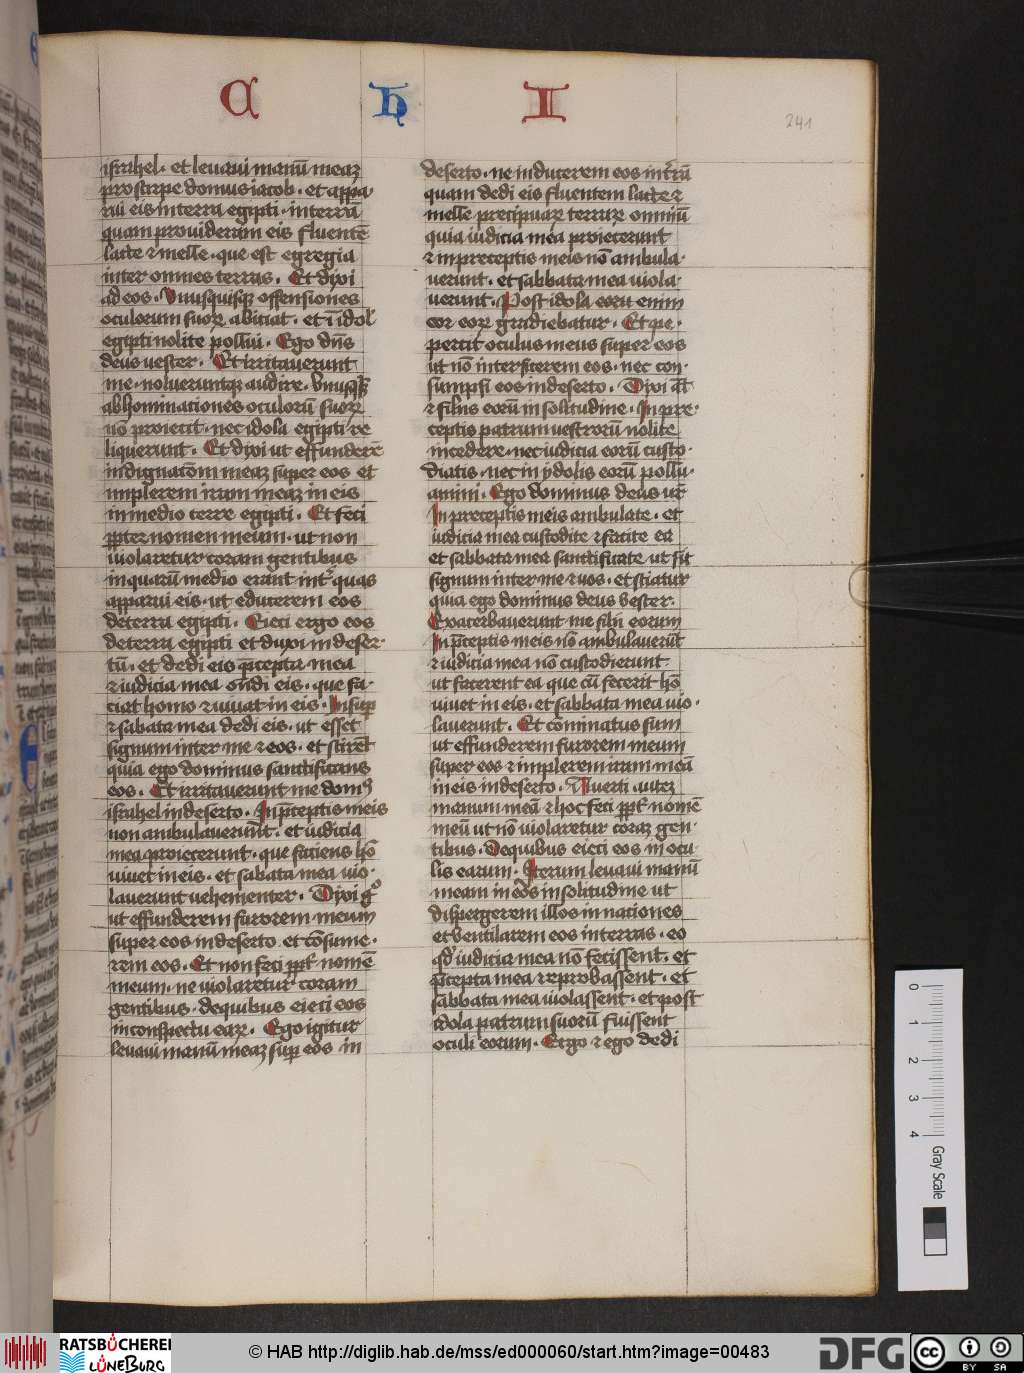 C h I
241
israhel · et levavi manū meaꝫ
pro stirpe domus iacob · et appa·
rui eis in terra egipti · in terrā
quam provideram eis fluentē
lacte ⁊ melle · que est egregia
inter omnes terras · Et dixi
ad eos · Unusquisqꝫ offensiones
oculorum suoꝝ abiciat · et ī idol'
egipti nolite pollui · Ego dn̄s
deus vester · Et irritaverunt
me · nolueruntqꝫ audire · Unusq'sqꝫ
abhominationes oculorū suoꝝ
nō proiecit · nec idola egipti re
liquerunt · Et dixi ut effunderē
indignatōm meaꝫ super eos et
implerem iram meaꝫ in eis
in medio terre egipti · Et feci
ꝓpter nomen meum · ut non
violaretur coram gentibus
in quarū medio erant int' quas
apparui eis · ut educerem eos
de terra egipti · Eieci ergo eos
de terra egipti et duxi in deser·
tū · et dedi eis p̄cepta mea
⁊ iudicia mea on̄di eis · que fa·
ciat homo ⁊ vivat in eis · Insuꝑ
⁊ sabata mea dedi eis · ut esset
signum inter me ⁊ eos · et scirēt
quia ego dominus sanctificans
eos · Et irritaverunt me domꝰ
israhel in deserto · In p̄ceptis meis
non ambulaverūnt · et iudicia
mea proiecerunt · que faciens hō
vivet in eis · et sabata mea vio·
laverunt vehementer · Dixi gͦ
ut effunderem furorem meum
super eos in deserto et cōsume·
rem eos · Et non feci ꝓpt' nomē
meum · ne violaretur coram
gentibus · de quibus eieci eos
in conspectu eaꝝ · Ego igitur
levavi manū meaꝫ suꝑ eos in
deserto · ne inducerem eos in t'rā
quam dedi eis fluentem lacte ⁊
melle precipuaꝫ terraꝝ omniū
quia iudicia mea proiecerunt
⁊ in preceptis meis nō ambula·
verunt · et sabbata mea viola·
verunt · Post idola eorū enim
cor eoꝝ gradiebatur · Et pe·
percit oculus meus super eos
ut nō interficerem eos · nec con·
sumpsi eos in deserto · Dixi aūt
⁊ filius eorū in solitudine · In pre·
ceptis patrum vestrorū nolite
incedere · nec iudicia eorū custo·
diatis · nec in ydolis eorū pollu·
amini · Ego dominus deus ur̄
In preceptis meis ambulate · et
iudicia mea custodite ⁊ facite ea
et sabbata mea sanctificate ut sit
signum inter me ⁊ vos · et sciatur
quia ego dominus deus vester ·
Exacerbaverunt me filii eorum
In p̄ceptis meis nō ambulaverūt
⁊ iudicia mea nō custodierunt
ut facerent ea que cū fecerit hō
vivet in eis · et sabbata mea vio·
laverunt · Et cōminatus sum
ut effunderem furorem meum
super eos ⁊ implerem iram meā
in eis in deserto · Averti autez
manum meā ⁊ hoc feci ꝓpt' nomē
meū ut nō violaretur coraꝫ gen·
tibus · De quibus eieci eos in ocu·
lis earum · Iterum levavi manū
meam in eōs in solitudine ut
dispergerem illos in nationes
et ventilarem eos in terras · eo
qd' iudicia mea nō fecissent · et
p̄cepta mea ⁊ reprobassent · et
sabbata mea violassent · et post
idola patrum suorū fuissent
oculi eorum · Ergo ⁊ ego dedi
0 1 2 3 4
Gray Scale
RATSBÜCHEREI LÜNEBURG
© HAB http://diglib.hab.de/mss/ed000060/start.htm?image=00483
DFG
cc BY SA